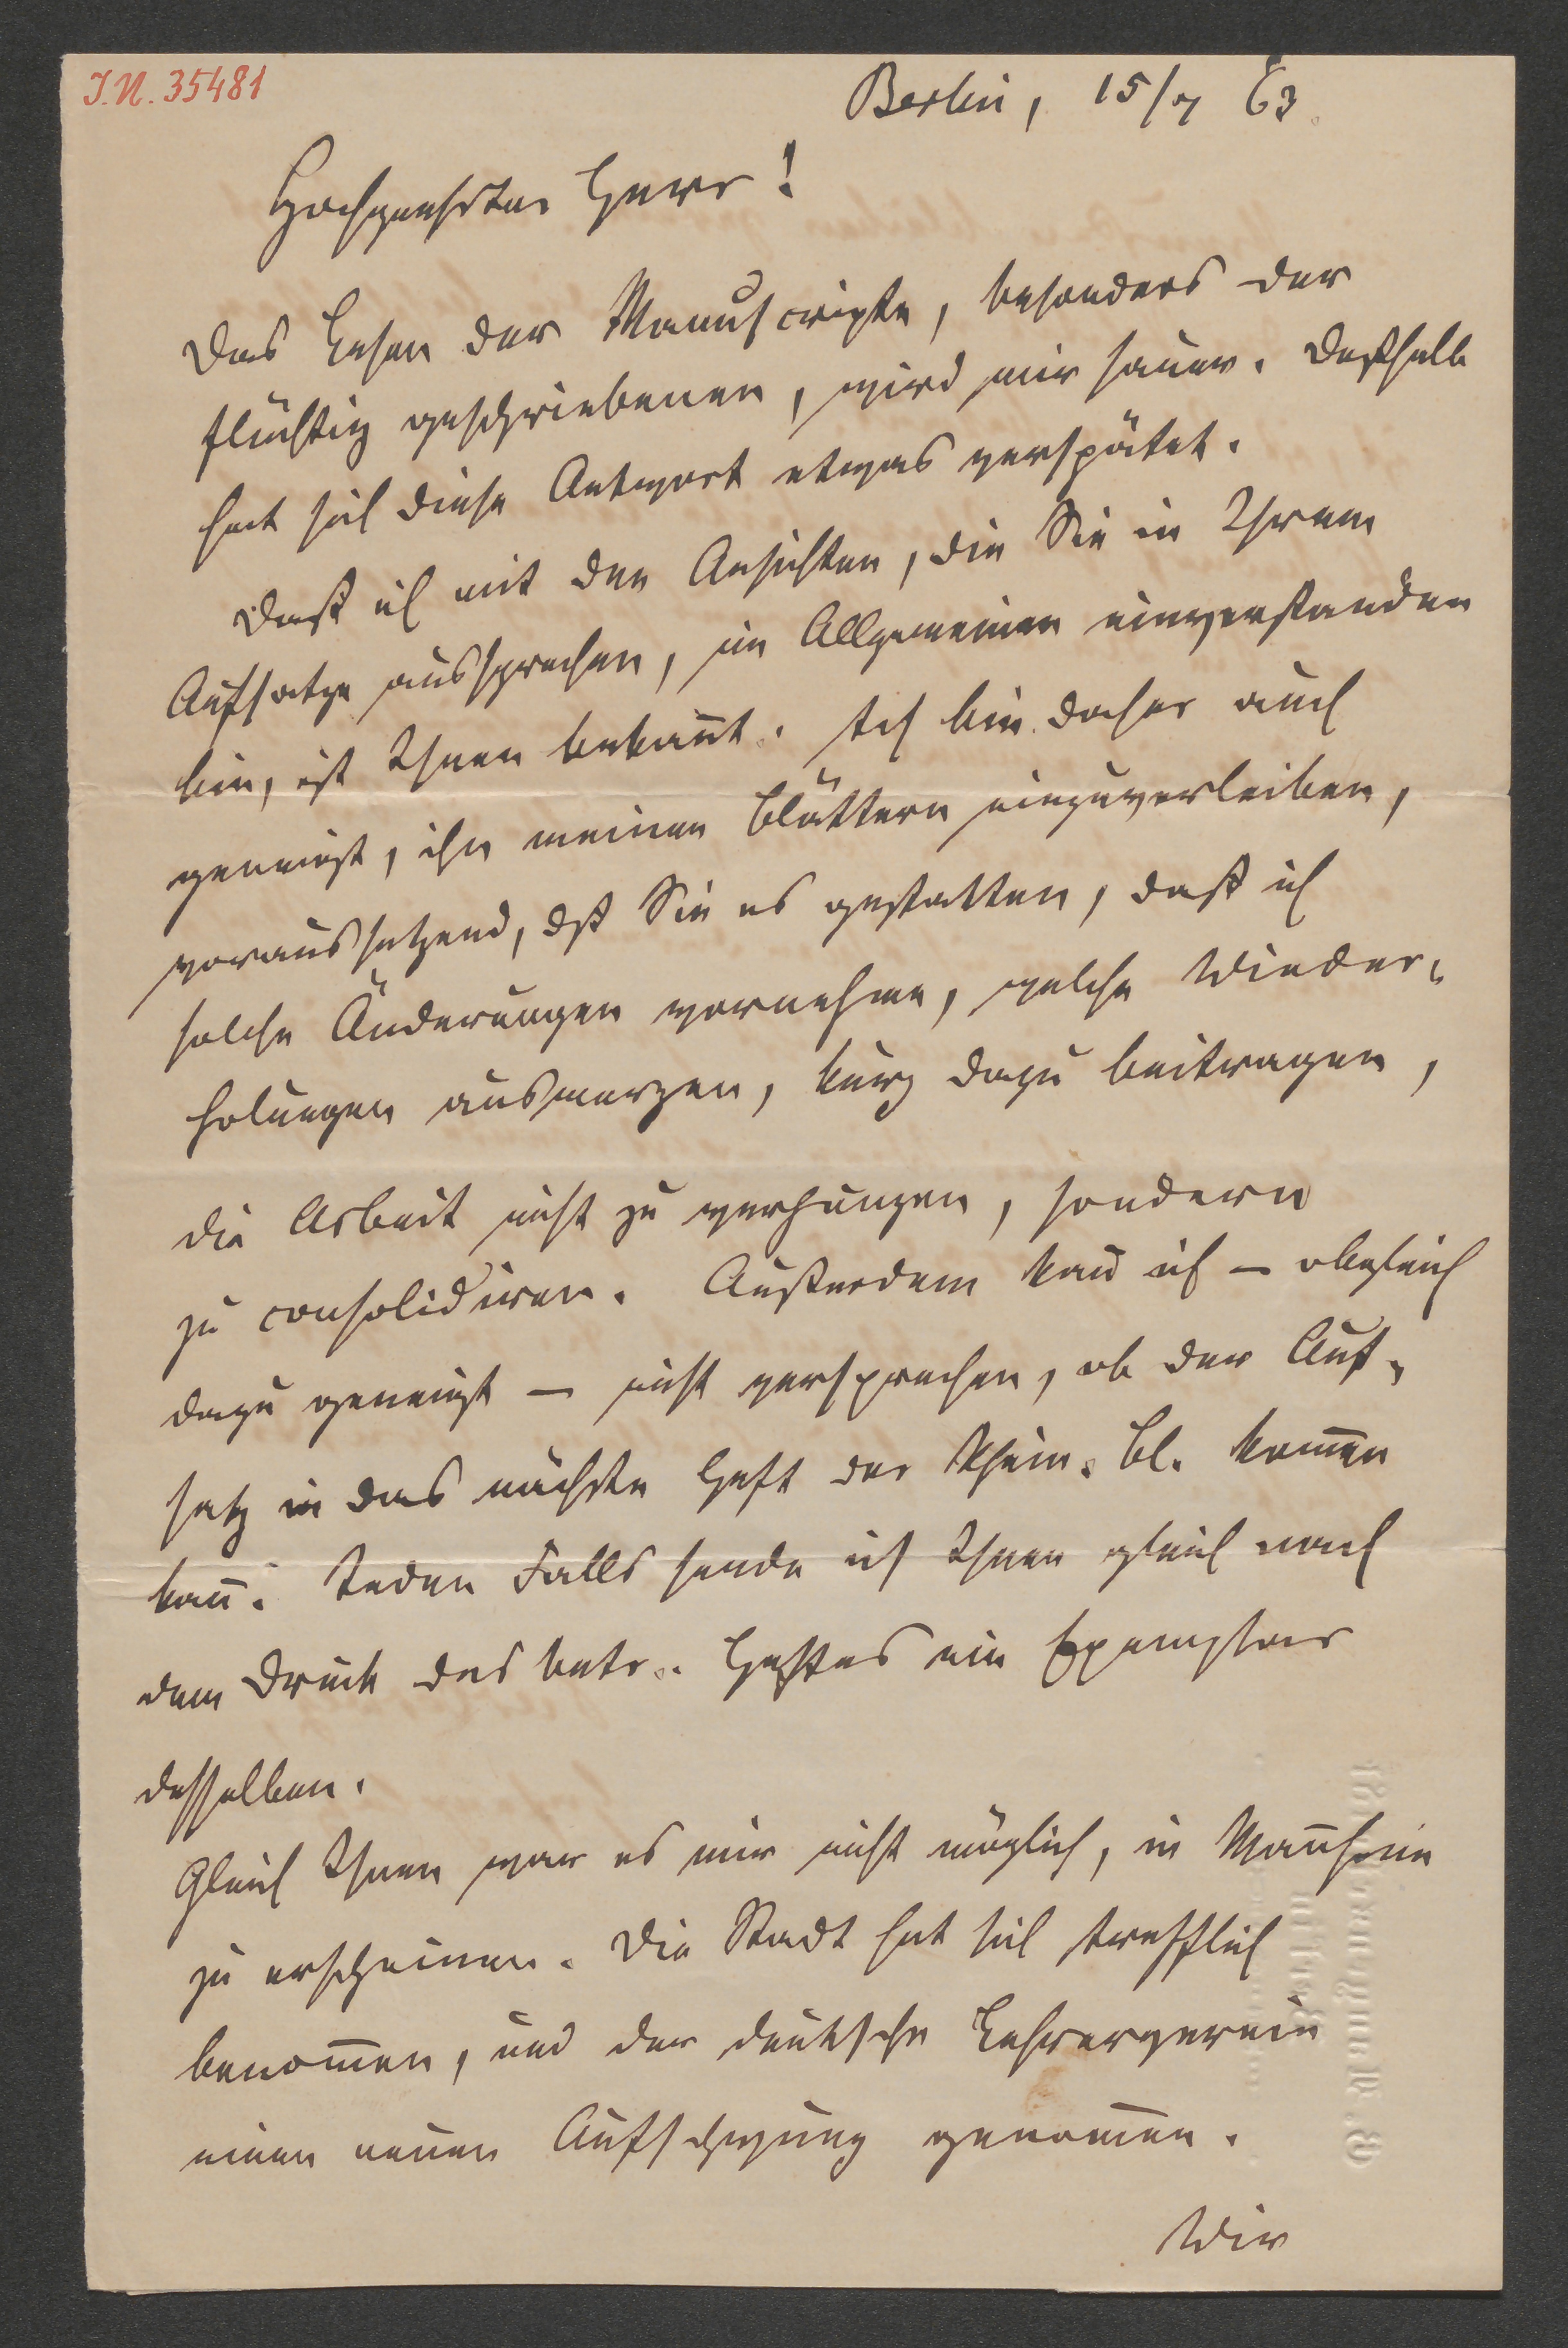 I.N. 35481
Berlin, 15/7 63.
Hochgeehrter Herr!
Das Lesen der Manuscripte, besonders der
flüchtig geschriebenen, wird mir sauer. Deßhalb
hat sich diese Antwort etwas verspätet.
Daß ich mit den Ansichten, die Sie in Ihrem
Aufsatze aussprechen, im Allgemeinen einverstanden
bin, ist Ihnen bekan̄t. Ich bin daher auch
geneigt, ihn meinen Blättern einzuverleiben,
voraussetzend, dß Sie es gestatten, daß ich
solche Änderungen vornehme, welche Wieder-
holungen ausmerzen, kurz dazu beitragen,
die Arbeit nicht zu verhunzen, sondern
zu consolidiren. Außerdem kan̄ ich — obgleich
dazu geneigt — nicht versprechen, ob der Auf-
satz in das nächste Heft der Rhein. Bl. kom̄en
kan̄. Jeden Falls sende ich Ihnen gleich nach
dem Druck des betr. Heftes ein Exemplar
desselben.
Gleich Ihnen war es mir nicht möglich, in Man̄heim
zu erscheinen. Die Stadt hat sich trefflich
benom̄en, und der deutsche Lehrerverein
einen neuen Aufschwung genom̄en.
Wir